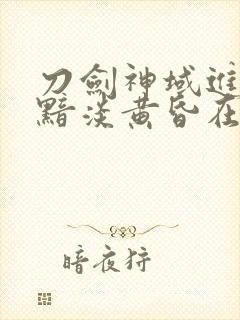 刀劍神域進
黯淡黃昏在
暗夜狩